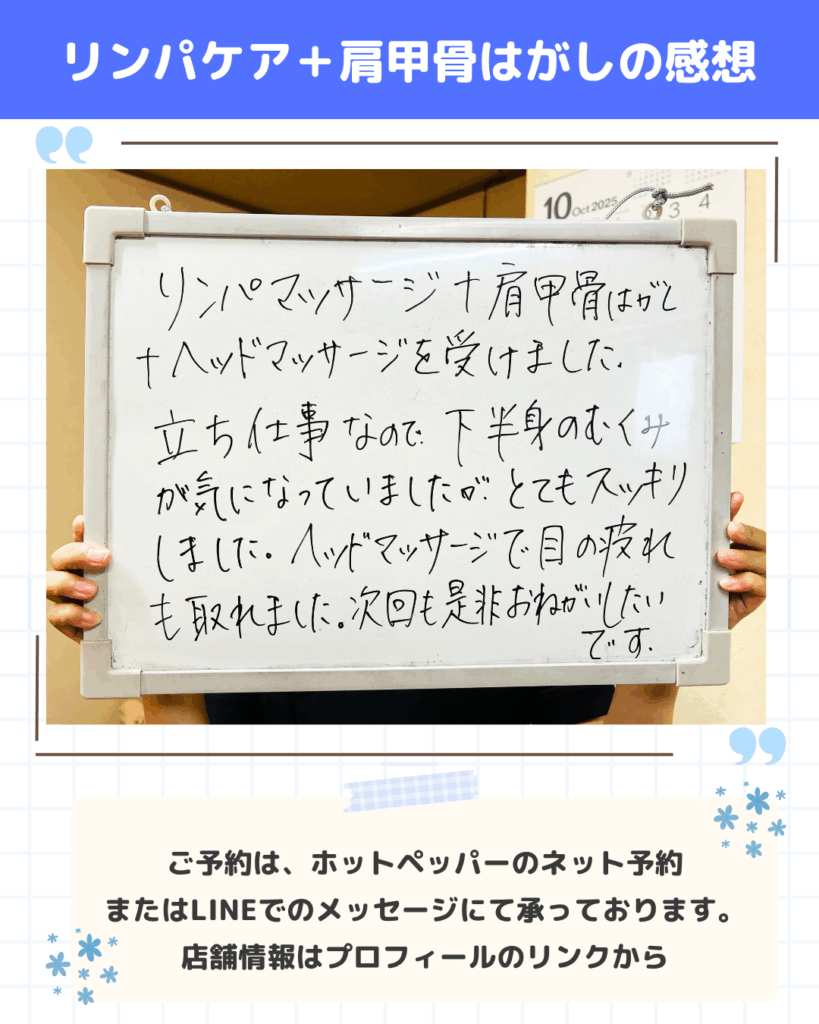 リンパケア＋肩甲骨はがしの感想
10 Oct 2025
3 4
リンパマッサージ＋肩甲骨はがし
＋ヘッドマッサージを受けました.
立ち仕事なので、下半身のむくみ
が気になっていましたが、とてもスッキリ
しました。ヘッドマッサージで目の疲れ
も取れました。次回も是非おねがいしたい
です.
ご予約は、ホットペッパーのネット予約
またはLINEでのメッセージにて承っております。
店舗情報はプロフィールのリンクから